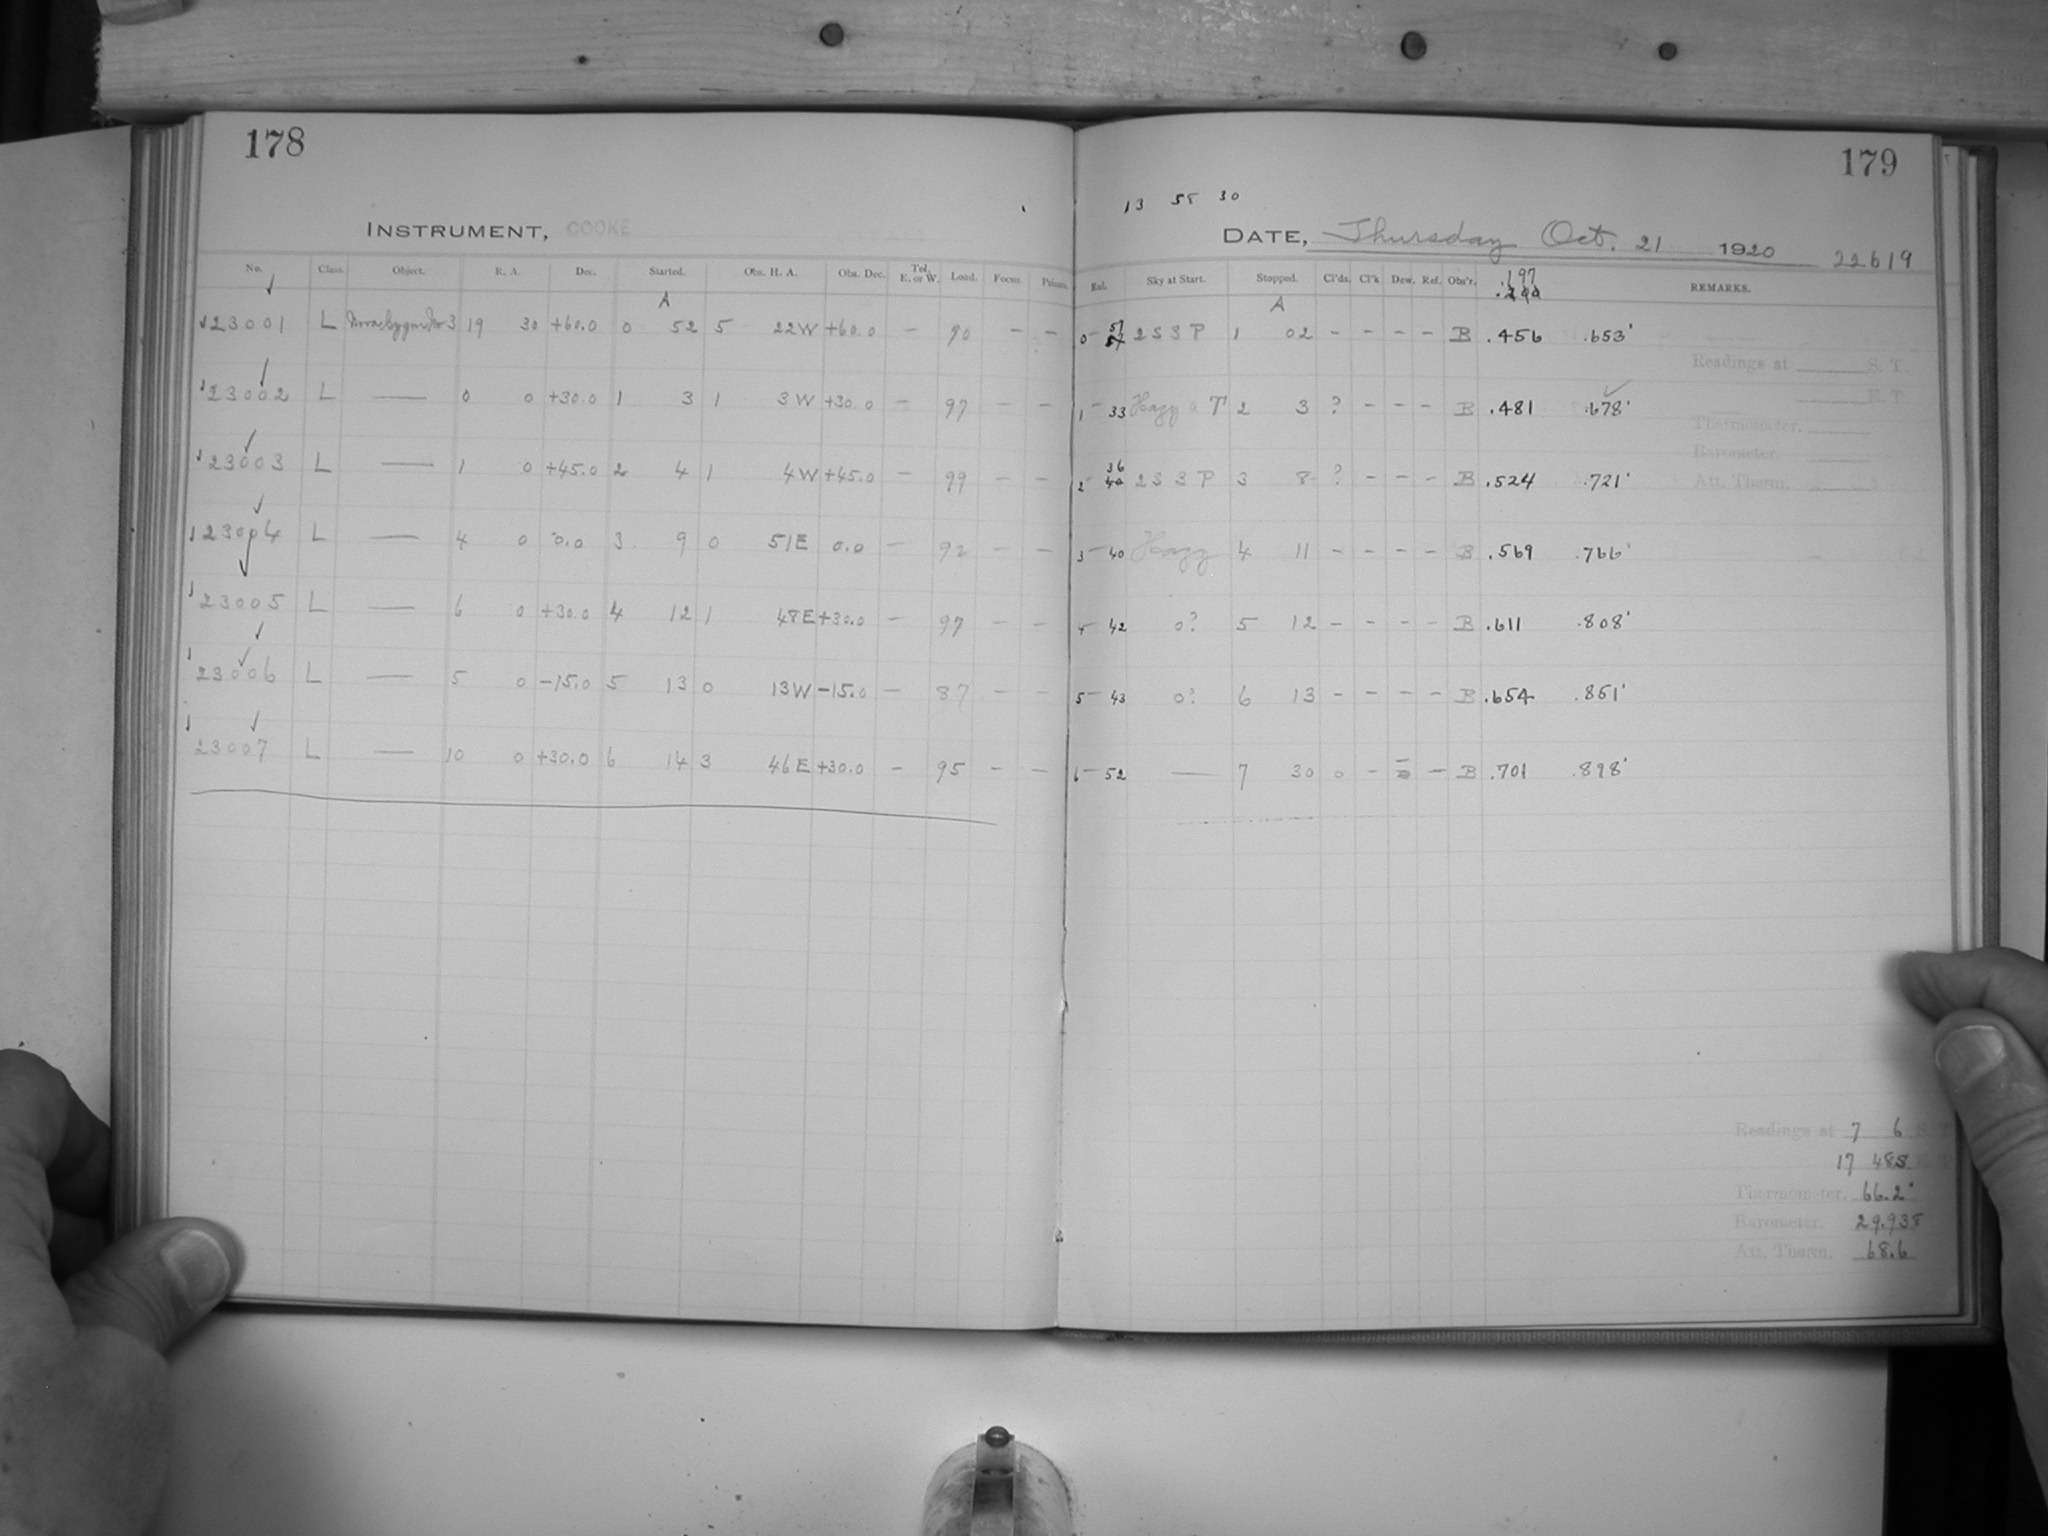 178
INSTRUMENT, COOKE
No. Class. Object. R. A. Dec. Started. Obs. H. A. Obs. Dec. Tel. E. or W. Load. Focus. Prisms.
A
23001 L Nova Cygni No 3 19 30 +60.0 0 52 5 22 W +60.0 – 90 – –
23002 L — 0 0 +30.0 1 3 1 3 W +30.0 – 97 – –
23003 L — 1 0 +45.0 2 4 1 4 W +45.0 – 99 – –
23004 L — 4 0 0.0 3 9 0 51 E 0.0 – 92 – –
23005 L — 6 0 +30.0 4 12 1 48 E +30.0 – 97 – –
23006 L — 5 0 -15.0 5 13 0 13 W -15.0 – 87 – –
23007 L — 10 0 +30.0 6 14 3 46 E +30.0 – 95 – –
179
13 55 30
DATE, Thursday Oct. 21 1920 22619
Rel. Sky at Start. Stopped. Cl'ds. Cl'k Dew. Ref. Obs'r. .197 REMARKS.
A
0 – 57 2 S 3 P 1 02 – – – – B .456 .653'
1 – 33 Hazy 0 T 2 3 ? – – – B .481 .678'
2 – 36 2 S 3 P 3 8 ? – – – B .524 .721'
3 – 40 Hazy 4 11 – – – – B .569 .766'
4 – 42 0? 5 12 – – – – B .611 .808'
5 – 43 0? 6 13 – – – – B .654 .851'
6 – 52 — 7 30 0 – – – B .701 .898'
Readings at S. T.
E. T.
Thermometer.
Barometer.
Att. Therm.
Readings at 7 6 S T
17 48
Thermometer. 66.2
Barometer. 29.935
Att. Therm. 68.6